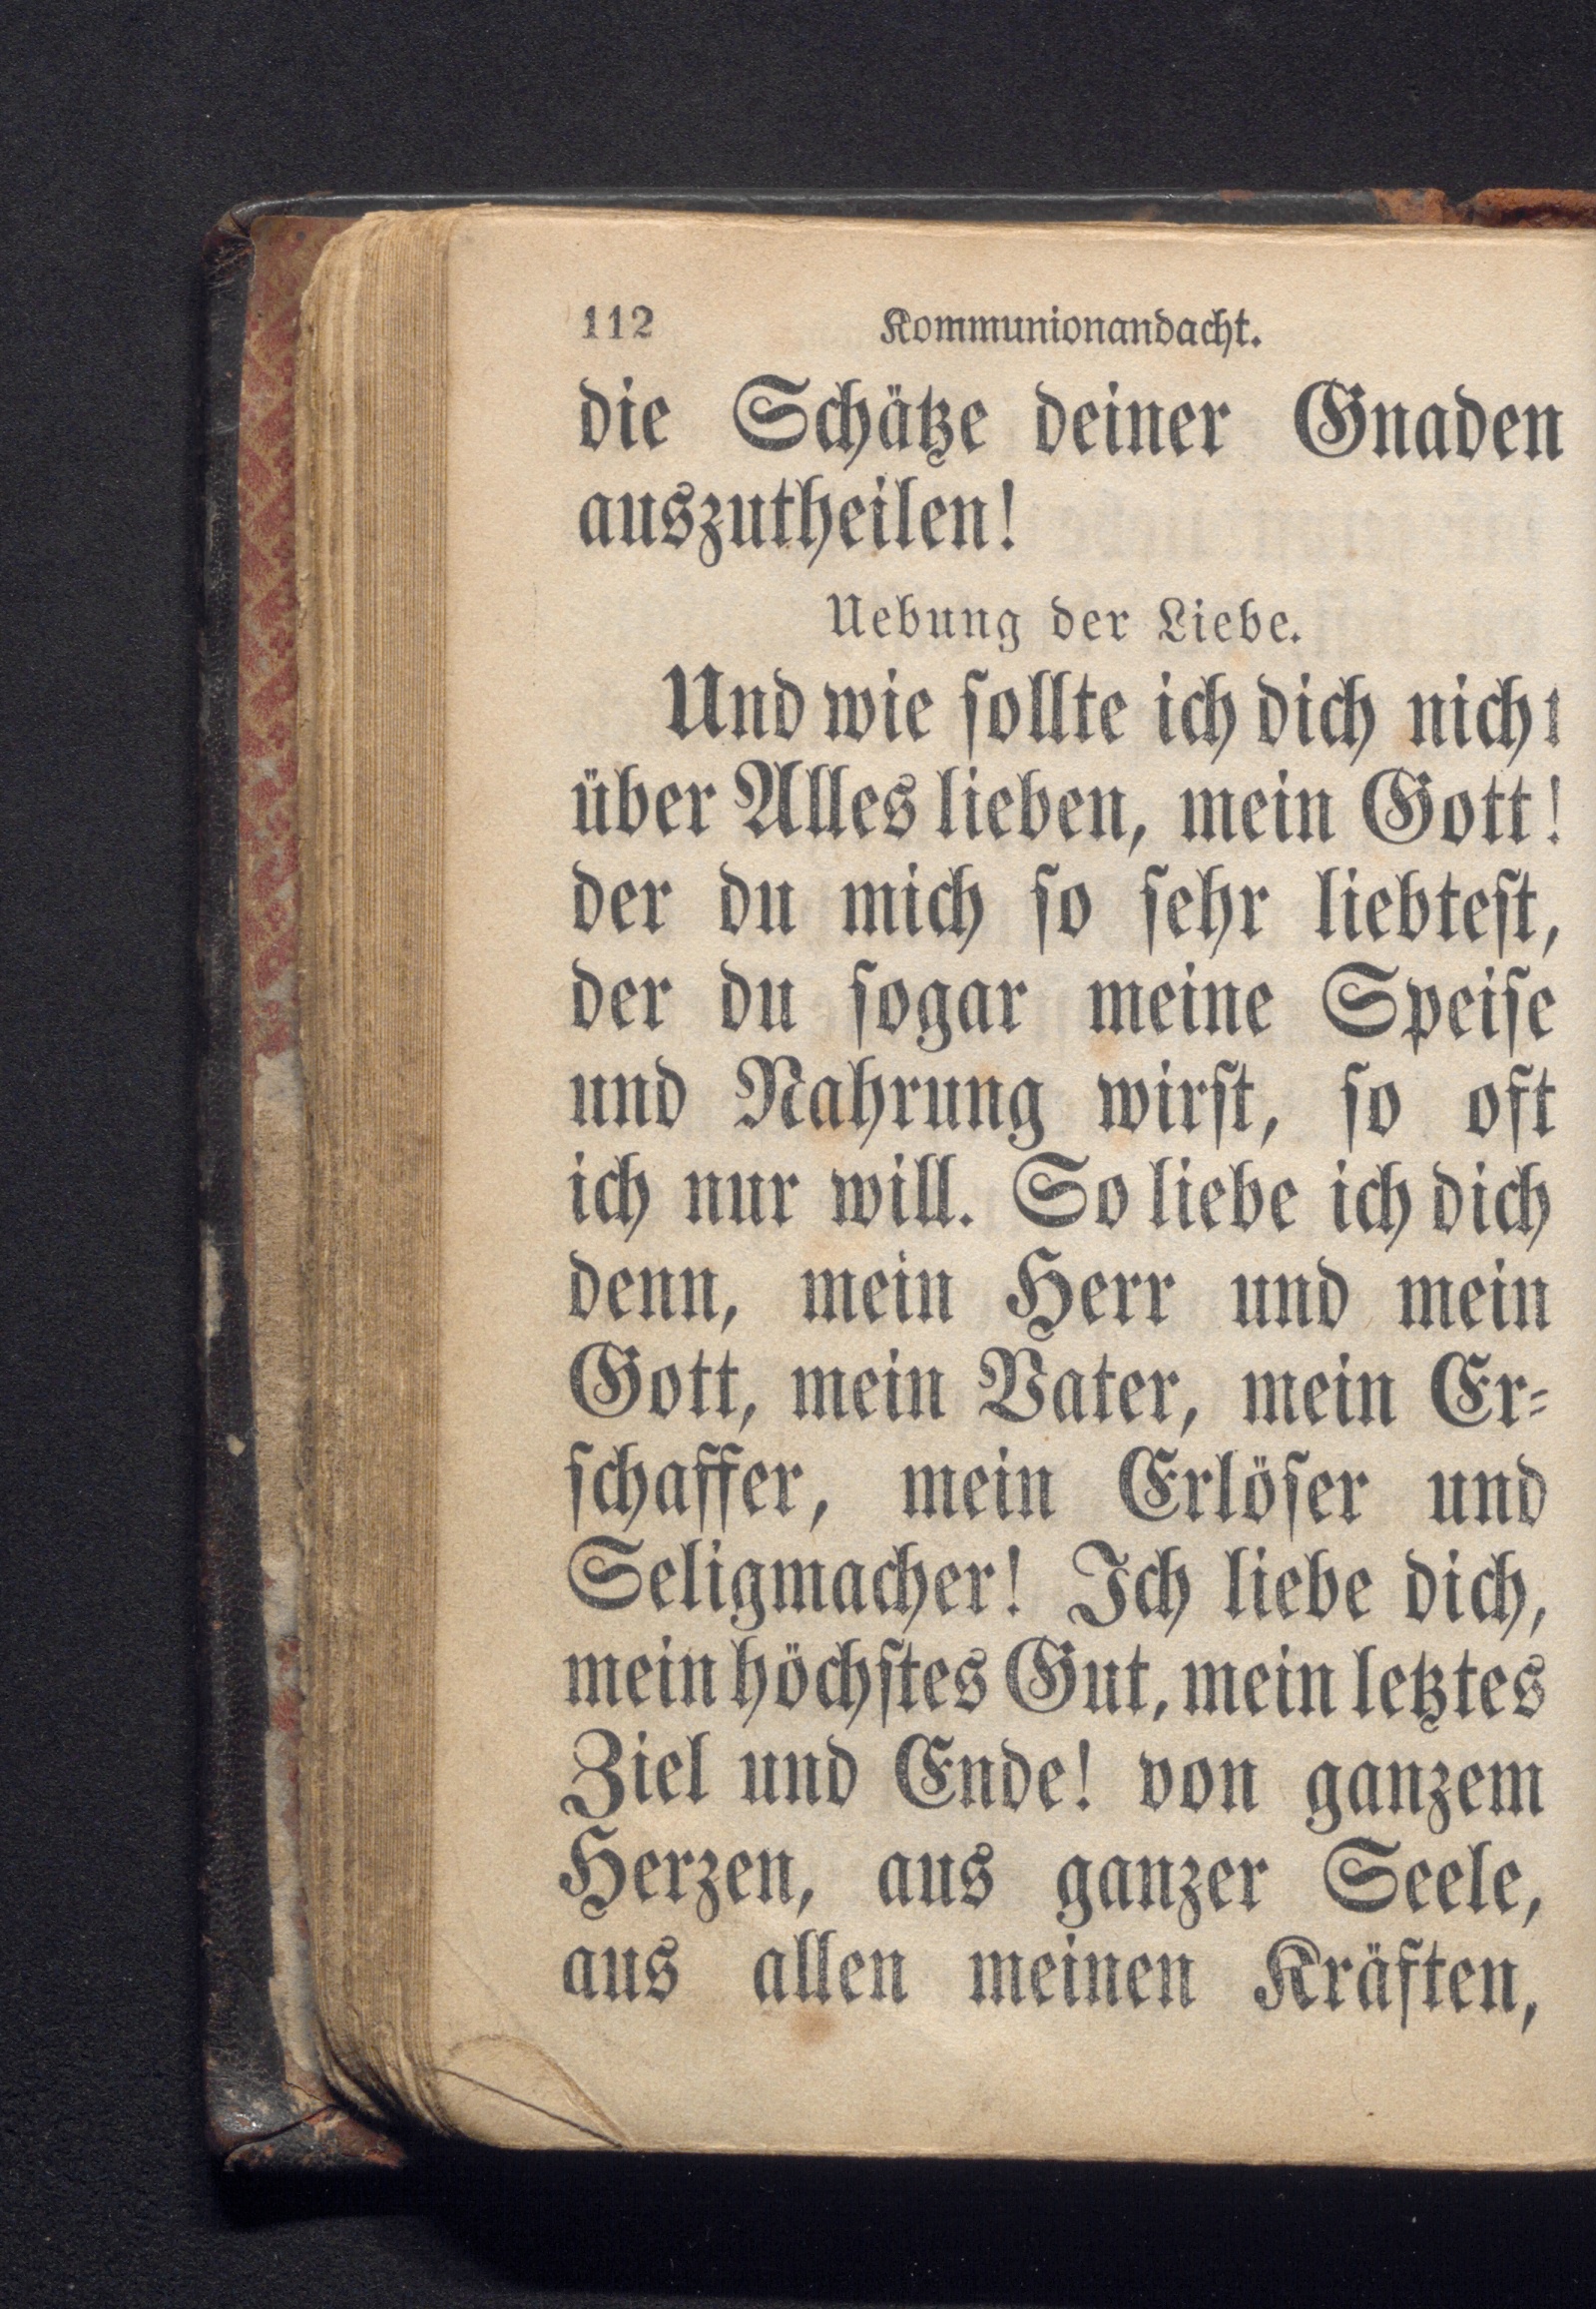 112 Kommunionandacht.
die Schätze deiner Gnaden
auszutheilen!
Uebung der Liebe.
Und wie ſollte ich dich nicht
über Alles lieben, mein Gott!
der du mich ſo ſehr liebteſt,
der du ſogar meine Speiſe
und Nahrung wirſt, ſo oft
ich nur will. So liebe ich dich
denn, mein Herr und mein
Gott, mein Vater, mein Er-
ſchaffer, mein Erlöſer und
Seligmacher! Ich liebe dich,
mein höchſtes Gut, mein letztes
Ziel und Ende! von ganzem
Herzen, aus ganzer Seele,
aus allen meinen Kräften,